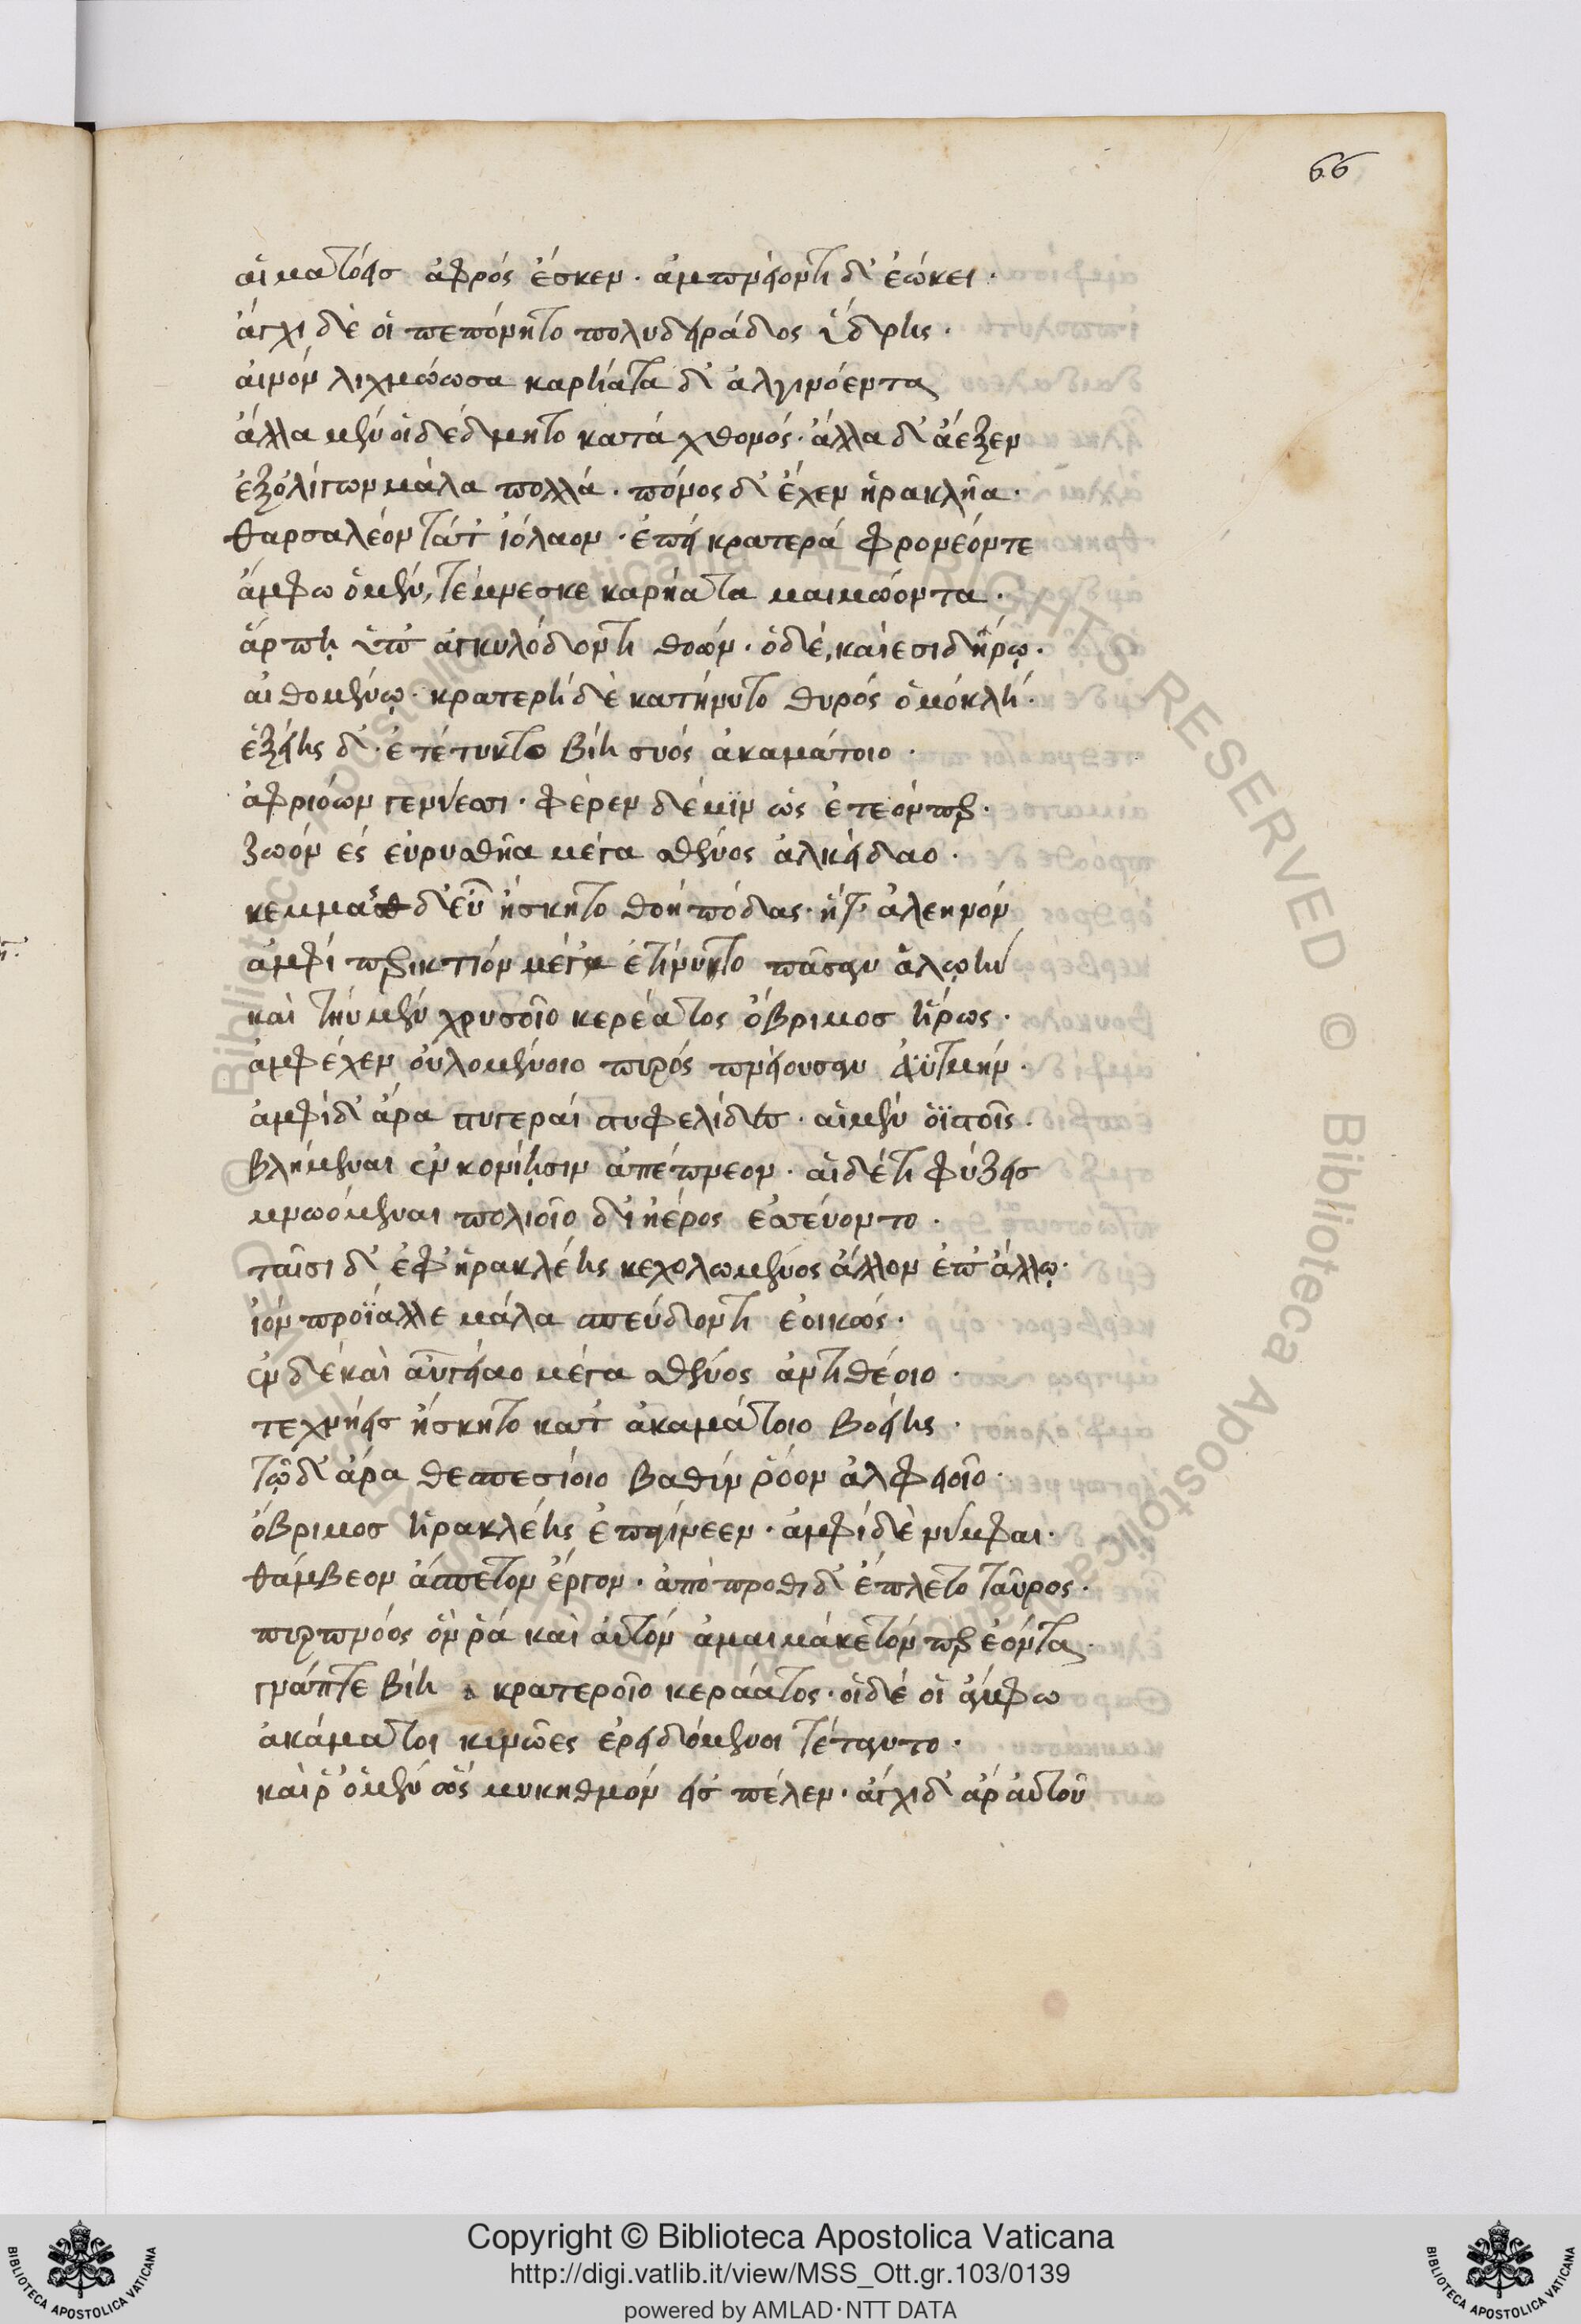 66
αἱματόεις ἀφρός ἔσκεν. ἀμπνείοντι δ' ἐώκει.
ἄγχι δὲ οἱ πεπόνητο πολυδειράδιος ὕδρης.
αἰνόν λιχμώωσα καρήατα δ' ἀλγινόεντα
ἄλλα μὲν οἱ δέδμητο κατά χθονός. ἄλλα δ' ἄεξεν
ἐξολίγων μάλα πολλά. πόνος δ' ἔχεν ἡρακλῆα.
θαρσαλέον τάτ ἰόλαον. ἐπεί κρατερά φρονέοντε
ἄμφω ὁ μὲν, τέμνεσκε καρήατα μαιμώοντα.
ἅρπῃ ὑπ' ἀγκυλόδοντι θοών. ὁ δέ, καίε σιδήρῳ.
αἰθομένῳ. κρατερή δὲ κατήνυτο θυρός ὁμόκλή.
ἑξείης δ'. ἐτέτυκτο βίη συός ἀκαμάτοιο.
ἀφριόων γενύεσσι. φέρεν δέ μϊν ὡς ἐτεόν περ.
ζωόν ἐς εὐρυσθῆα μέγα σθένος ἀλκείδαο.
κεμμάς δ' εὖ ἤσκητο θοή πόδας. ἥτ' ἀλεηνόν
ἀμφί περικτιόν μέγα ἐτίνυκτο πᾶσαν ἀλῳήν
καὶ τὴν μὲν χρυσοῖο κερέατος ὄβριμος ἥρως.
ἀμφέχεν οὐλομένοιο πυρός πνείουσαν ἀϋτμήν.
ἀμφί δ' ἄρα στυγεραί στυφελίδες. αἱ μὲν ὀϊστοῖς.
βλήμεναι ἐν κονίῃσιν ἀπέπνεον. αἱ δ' ἔτι φύζεις
μνωόμεναι πολιοῖο δι ἠέρος ἐσσεύοντο.
ταῖσι δ' ἐφ' ἡρακλέης κεχολωμένος ἄλλον ἐπ' ἄλλῳ.
ἰόν προϊάλλε μάλα σπεύδοντι ἐοικώς.
ἐν δὲ καὶ αὐγείαο μέγα σθένος ἀντιθέοιο.
τεχνήεις ἤσκητο κατ' ἀκαμάτοιο βοείης.
τῷ δ' ἄρα θεσπεσίοιο βαθύν ῥόον ἀλφειοῖο.
ὄβριμος ἡρακλέης ἐπαίνεεν. ἀμφί δὲ νύμφαι.
θάμβεον ἄσπετον ἔργον. ἀπὸ προθι δ' ἔπλετο ταῦρος.
πυρπνόος ὅν ῥά καὶ αὐτόν ἀμαιμάκετόν περ ἐόντα
γνάπτε βίη κρατεροῖο κεράατος. οἱ δέ οἱ ἄμφω
ἀκάματοι κινῶες ἐρειδόμενοι τέταντο.
καὶ ῥ' ὁ μὲν ὡς μυκηθμόν εἰς πέλεν. ἄγχι δ' ἄρ αὐτοῦ
Copyright © Biblioteca Apostolica Vaticana
http://digi.vatlib.it/view/MSS_Ott.gr.103/0139
powered by AMLAD·NTT DATA